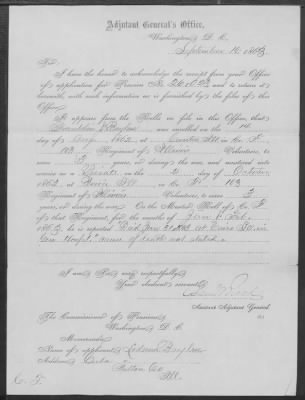 Adjutant General's Office,
Washington, D. C.
September 1863
Sir:
I have the honor to acknowledge the receipt from your Office
of application for Pension No. and to return it
herewith with such information as is furnished by the files of this
Office.
It appears from the Rolls on file in this Office, that
was enrolled on the
day of 1862, at Ill. in Co. F
103 Regiment of Illinois Volunteers, to serve
3 years, or during the war, and mustered into
service as a Private on the 2 day of October
1862, at Peoria Ill, in Co. F 103
Regiment of Illinois Volunteers, to serve 3
years, or during the war. On the Muster Roll of Co. F
of that Regiment, for the months of Jan & Feb,
1863, he is reported "Died Jan 31 1863 at in
Gen Hospt." cause of death not stated.
I am, Sir, very respectfully,
Your obedient servant,
Assistant Adjutant General
The Commissioner of Pensions,
Washington, D. C.
Memoranda:
Name of applicant,
Address, Cuba
Fulton Co
Ill.